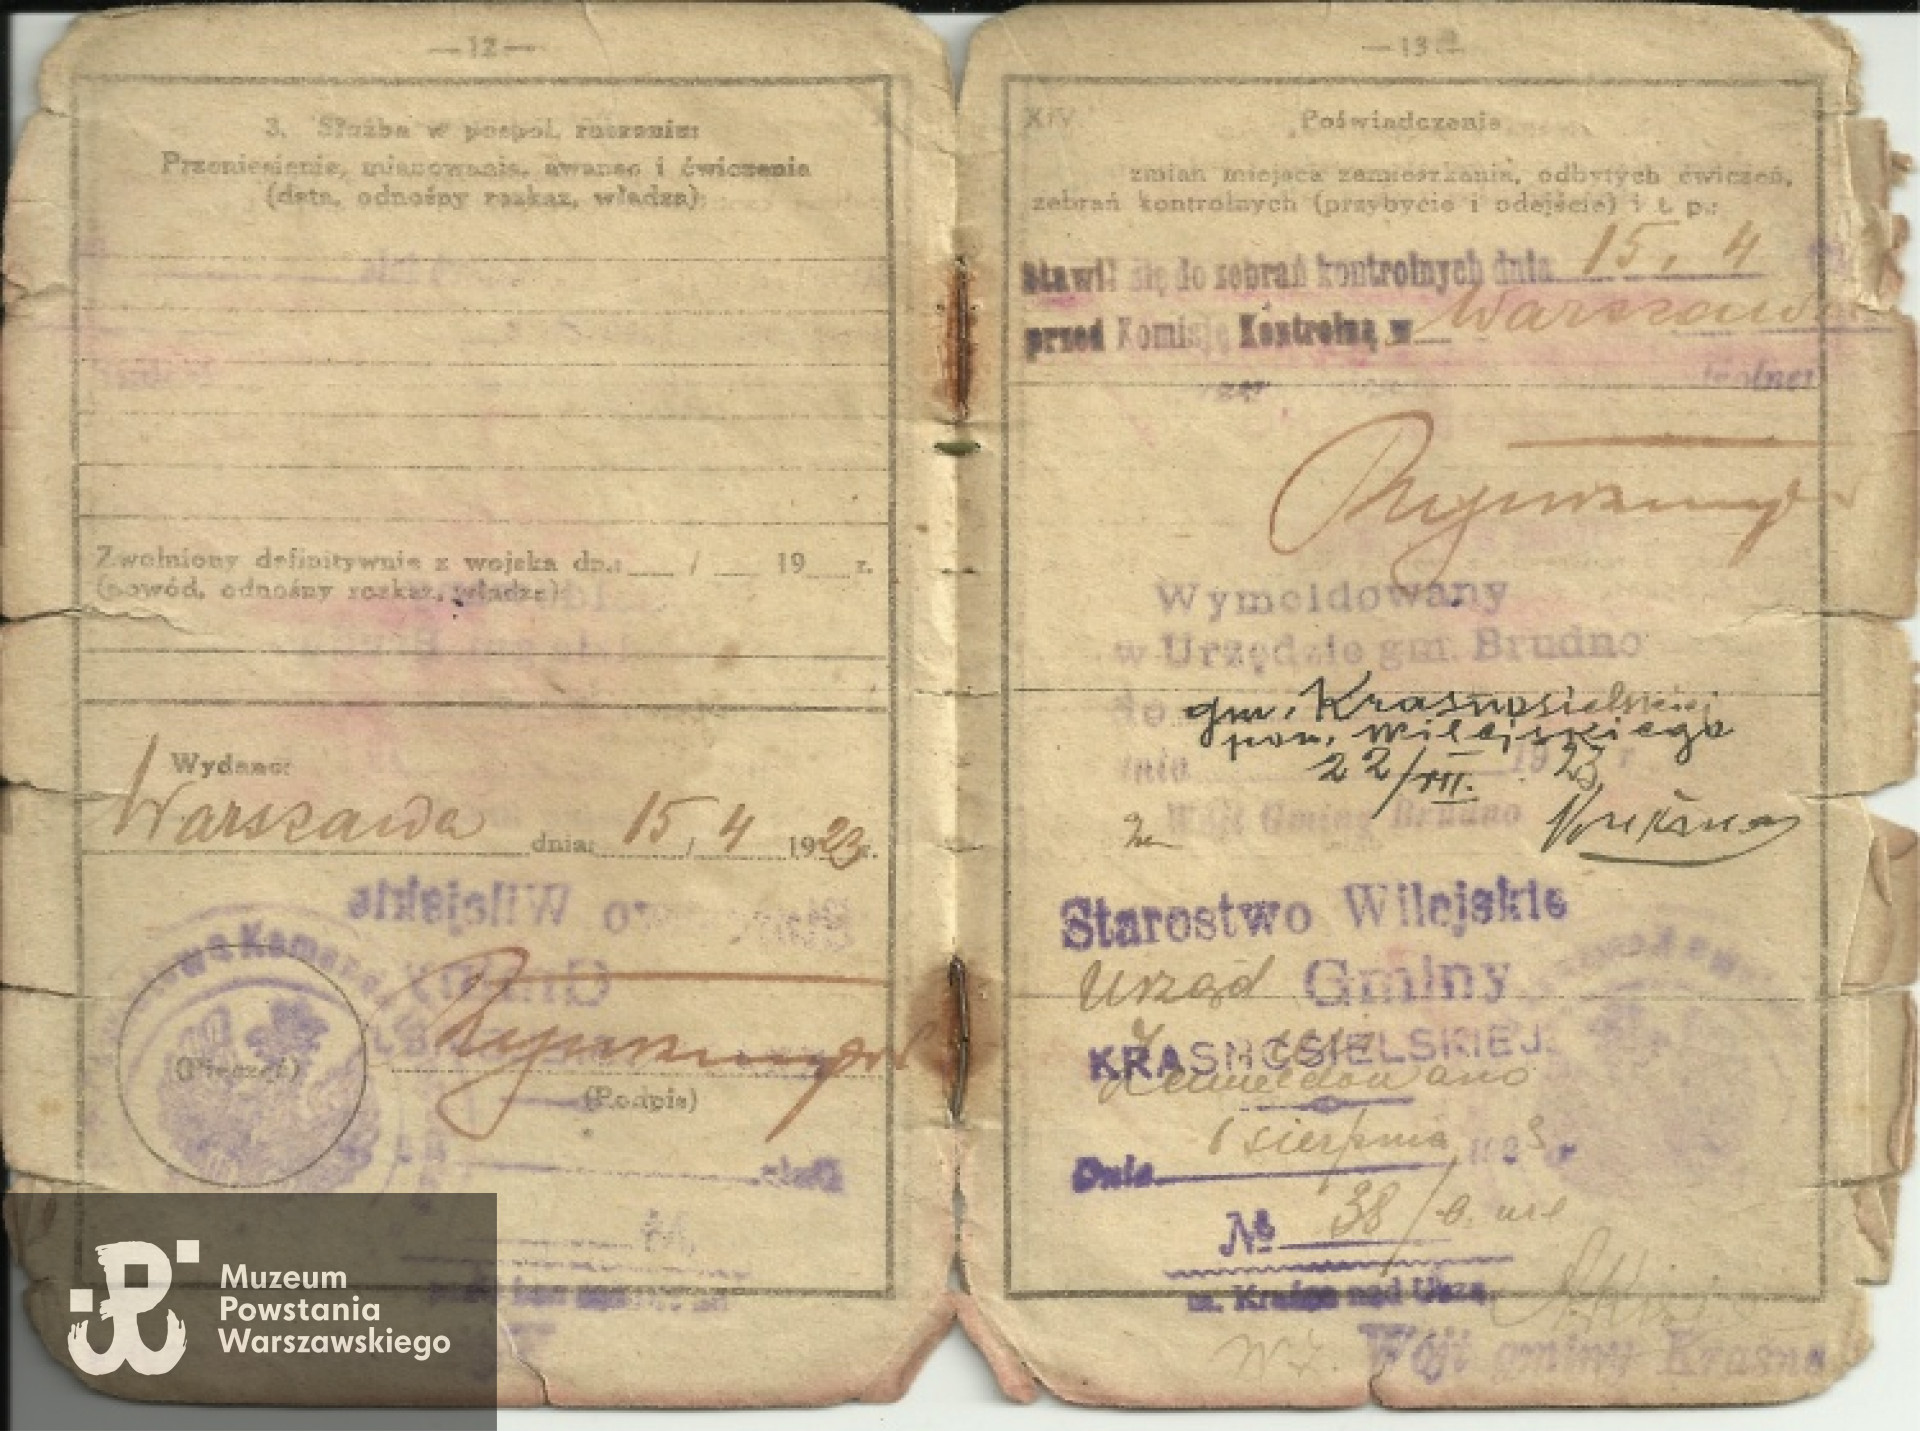 —12—
3. Służba w pospol. ruszeniu:
Przeniesienie, mianowania, awanse i ćwiczenia
(data, odnośny rozkaz, władza):
Zwolniony definitywnie z wojska dn.: / 19 r.
(powód, odnośny rozkaz, władza):
Wydano:
Warszawa dnia: 15/4 1923 r.
(Pieczęć)
(Podpis)
—13—
XIV Poświadczenie
zmian miejsca zamieszkania, odbytych ćwiczeń,
zebrań kontrolnych (przybycie i odejście) i t. p.:
Stawił się do zebrań kontrolnych dnia 15. 4
przed Komisję Kontrolną w Warszawie
Wymeldowany
w Urzędzie gm. Brudno
do gm. Krasnosielskiej
pow. Wilejskiego
dnia 22/VII. 1923 r
Wójt Gminy Brudno
Starostwo Wilejskie
Urząd Gminy
KRASNOSIELSKIEJ
Zameldowano
Dnia 1 sierpnia 1923 r
№ 38/
m. Kraśne nad Uszą
W z. Wójt gminy Kraśne
Muzeum
Powstania
Warszawskiego